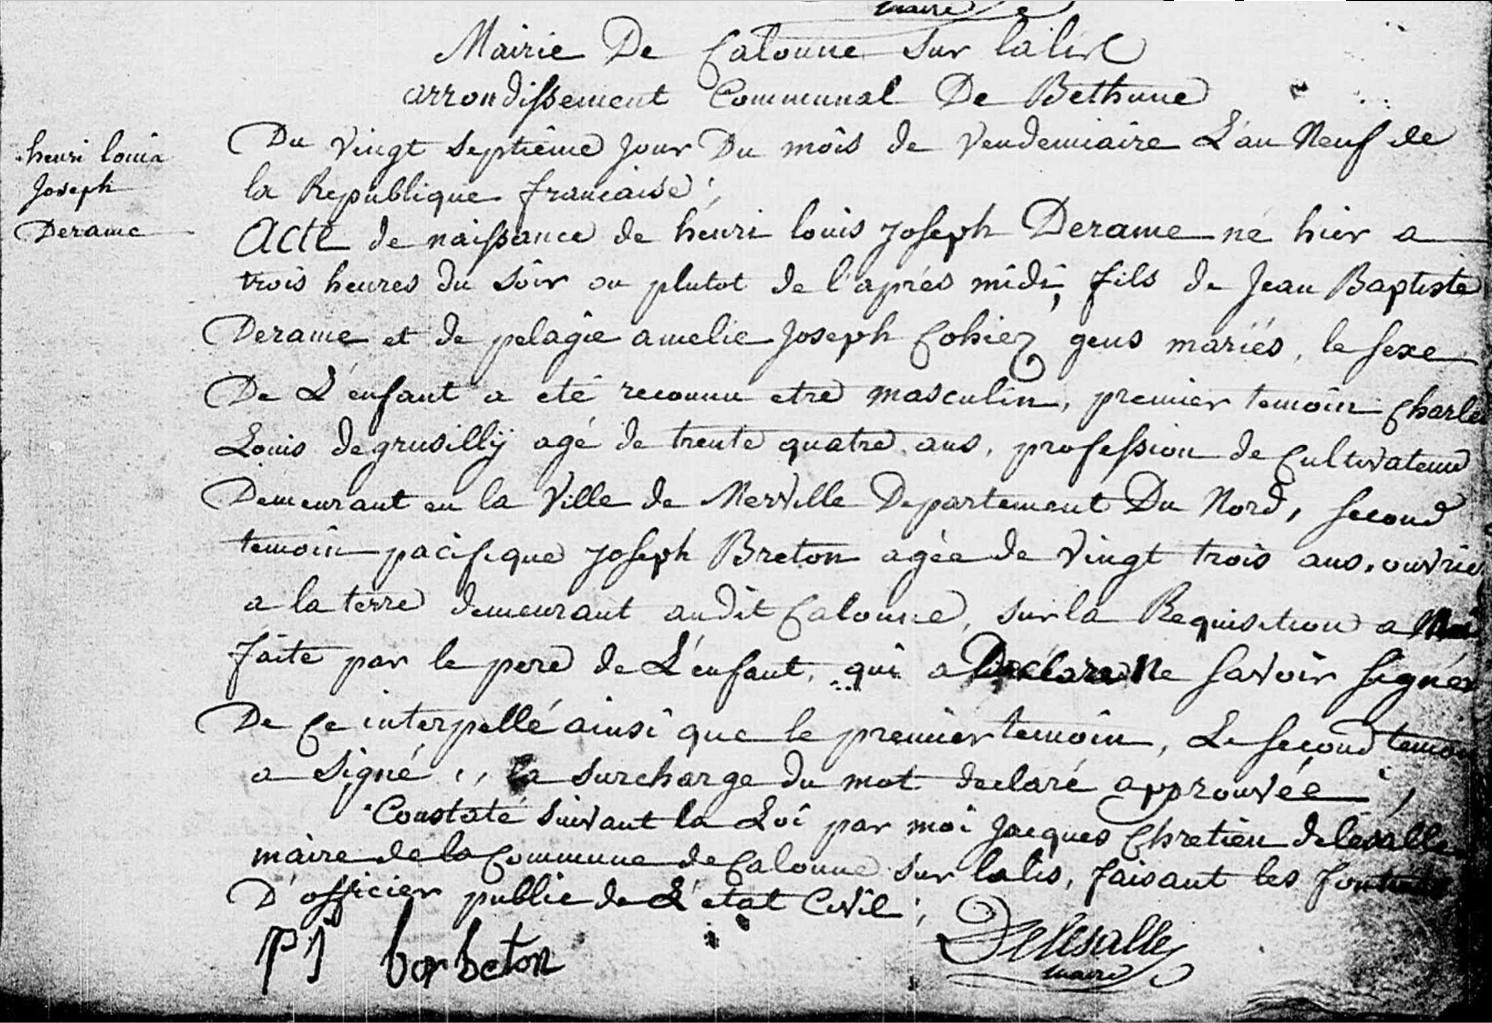 maire
Mairie De Calonne sur la lis
arrondissement Communal De Bethune
henri louis
Joseph
Derame
Du vingt septiême jour Du mois de Vendemiaire L'an Neuf de
la Republique francaise ;
Acte de naissance de henri louis joseph Derame né hier a
trois heures du soir ou plutot de l'aprés midi, fils de Jean Baptiste
Derame et de pelagie amelie Joseph Cohiez, gens mariés, le sexe
De L'enfant a eté reconnu etre masculin, premier temoin Charles
Louis degrusillÿ agé de trente quatre ans, profession de Cultivateur
Demeurant en la Ville de Merville Departement Du Nord, second
temoin pacifique joseph Breton agée de Vingt trois ans, ouvrier
a la terre demeurant audit Calonne, sur la Requisition a Moi
faite par le pere de L'enfant, qui a Declaré Ne savoir signér
De Ce interpellé ainsi que le premier temoin, Le second temoin
a signé ,, la surcharge du mot declaré approuvée ;
Constaté suivant la Loi par moi Jacques Chretien delesalle
maire de la Commune de Calonne sur la lis, faisant les
D'officier public de L'état Civil ;
P J Delesalle
maire